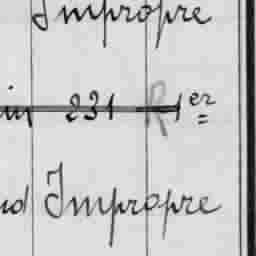 Impropre
in 231 R 1er
nd Impropre